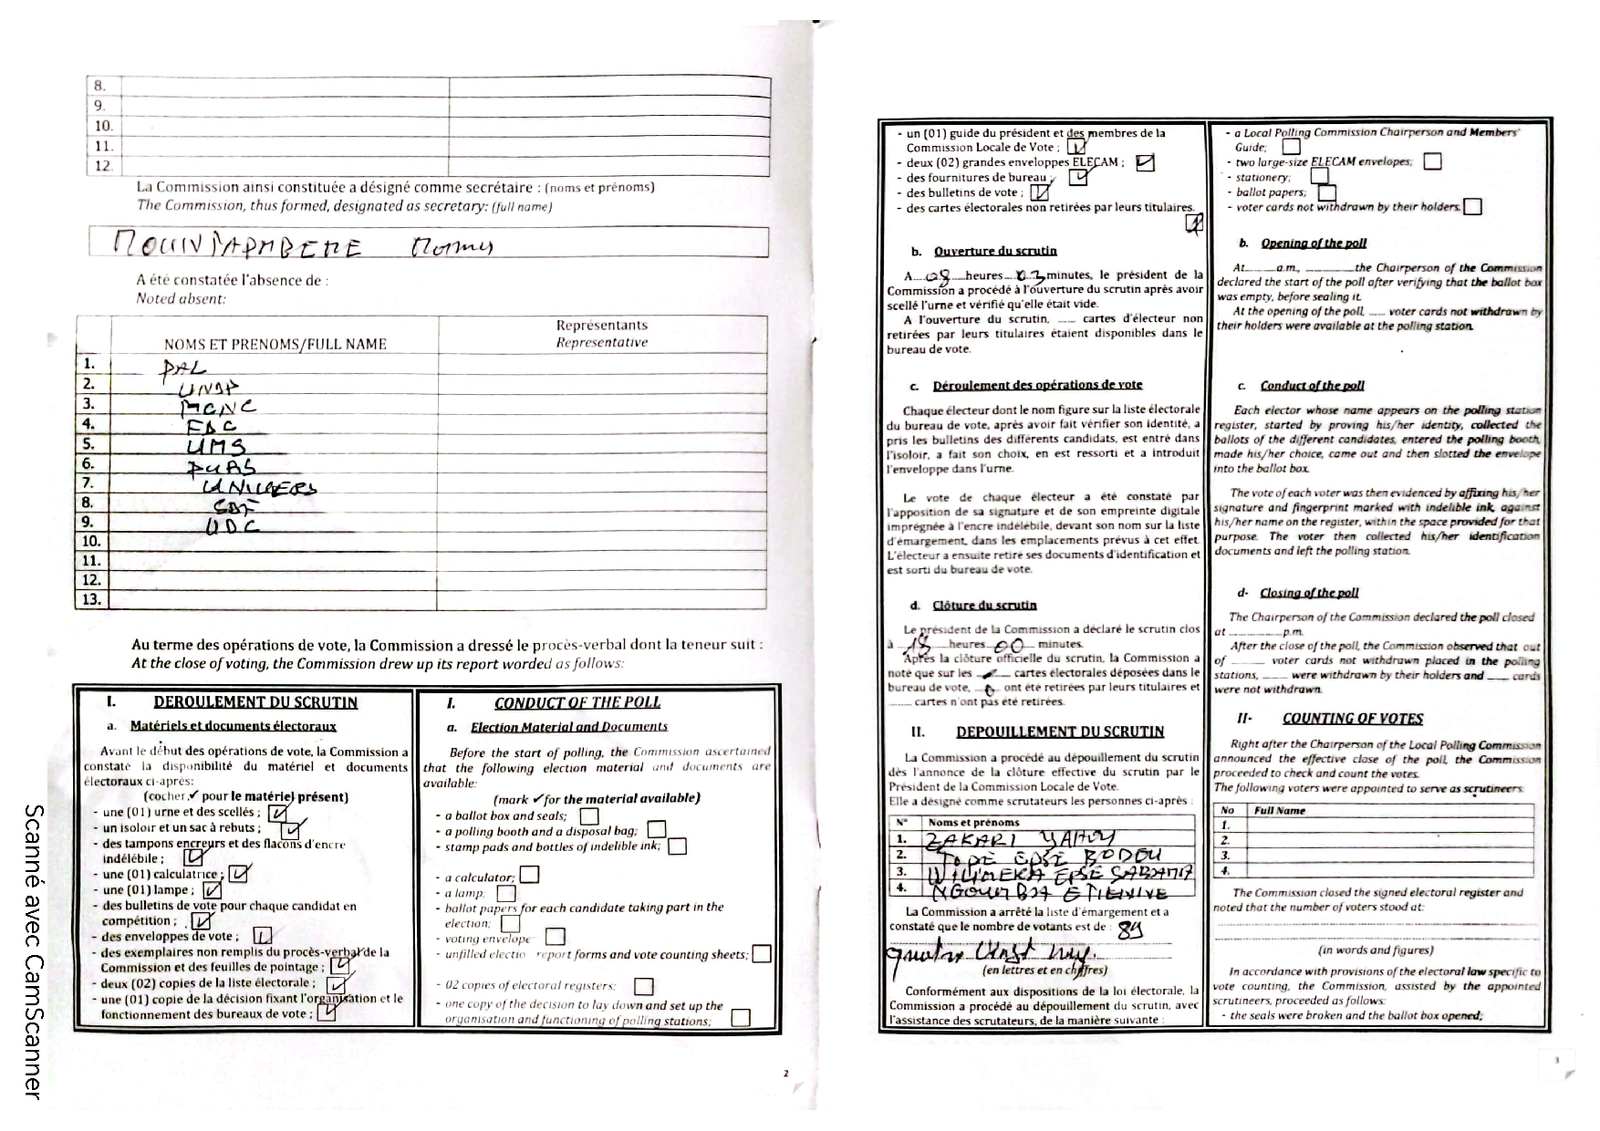 8.
9.
10.
11.
12.
La Commission ainsi constituée a désigné comme secrétaire : (noms et prénoms)
The Commission, thus formed, designated as secretary: (full name)
A été constatée l'absence de :
Noted absent:
NOMS ET PRENOMS/FULL NAME
Représentants
Representative
1. PAL
2. UNDP
3. MCNC
4. FDC
5. UMS
6. PURS
7. UNIVERS
8. SDF
9. UDC
10.
11.
12.
13.
Au terme des opérations de vote, la Commission a dressé le procès-verbal dont la teneur suit :
At the close of voting, the Commission drew up its report worded as follows:
I. DEROULEMENT DU SCRUTIN
a. Matériels et documents électoraux
Avant le début des opérations de vote, la Commission a
constaté la disponibilité du matériel et documents
électoraux ci-après:
(cocher ✓ pour le matériel présent)
- une (01) urne et des scellés ; ☑
- un isoloir et un sac à rebuts ; ☑
- des tampons encreurs et des flacons d'encre
indélébile ; ☑
- une (01) calculatrice ; ☑
- une (01) lampe ; ☑
- des bulletins de vote pour chaque candidat en
compétition ; ☑
- des enveloppes de vote ; ☑
- des exemplaires non remplis du procès-verbal de la
Commission et des feuilles de pointage ; ☑
- deux (02) copies de la liste électorale ; ☑
- une (01) copie de la décision fixant l'organisation et le
fonctionnement des bureaux de vote ; ☑
I. CONDUCT OF THE POLL
a. Election Material and Documents
Before the start of polling, the Commission ascertained
that the following election material and documents are
available:
(mark ✓ for the material available)
- a ballot box and seals; ☐
- a polling booth and a disposal bag; ☐
- stamp pads and bottles of indelible ink; ☐
- a calculator; ☐
- a lamp; ☐
- ballot papers for each candidate taking part in the
election; ☐
- voting envelope ☐
- unfilled electio report forms and vote counting sheets; ☐
- 02 copies of electoral registers: ☐
- one copy of the decision to lay down and set up the
organisation and functioning of polling stations; ☐
2
- un (01) guide du président et des membres de la
Commission Locale de Vote ; ☑
- deux (02) grandes enveloppes ELECAM ; ☑
- des fournitures de bureau ; ☑
- des bulletins de vote ; ☑
- des cartes électorales non retirées par leurs titulaires.
b. Ouverture du scrutin
A 08 heures 03 minutes, le président de la
Commission a procédé à l'ouverture du scrutin après avoir
scellé l'urne et vérifié qu'elle était vide.
A l'ouverture du scrutin, ..... cartes d'électeur non
retirées par leurs titulaires étaient disponibles dans le
bureau de vote.
c. Déroulement des opérations de vote
Chaque électeur dont le nom figure sur la liste électorale
du bureau de vote, après avoir fait vérifier son identité, a
pris les bulletins des différents candidats, est entré dans
l'isoloir, a fait son choix, en est ressorti et a introduit
l'enveloppe dans l'urne.
Le vote de chaque électeur a été constaté par
l'apposition de sa signature et de son empreinte digitale
imprégnée à l'encre indélébile, devant son nom sur la liste
d'émargement, dans les emplacements prévus à cet effet.
L'électeur a ensuite retiré ses documents d'identification et
est sorti du bureau de vote.
d. Clôture du scrutin
Le président de la Commission a déclaré le scrutin clos
à 18 heures 00 minutes.
Après la clôture officielle du scrutin, la Commission a
noté que sur les cartes électorales déposées dans le
bureau de vote, 0 ont été retirées par leurs titulaires et
..... cartes n'ont pas été retirées.
II. DEPOUILLEMENT DU SCRUTIN
La Commission a procédé au dépouillement du scrutin
dès l'annonce de la clôture effective du scrutin par le
Président de la Commission Locale de Vote.
Elle a désigné comme scrutateurs les personnes ci-après :
N° Noms et prénoms
1. ZAKARI YAHOU
2. TOPE EPSE BODOU
3. EPSE
4. NGOUMBA ETIENNE
La Commission a arrêté la liste d'émargement et a
constaté que le nombre de votants est de : 89
quatre vingt neuf
(en lettres et en chiffres)
Conformément aux dispositions de la loi électorale, la
Commission a procédé au dépouillement du scrutin, avec
l'assistance des scrutateurs, de la manière suivante :
- a Local Polling Commission Chairperson and Members'
Guide; ☐
- two large-size ELECAM envelopes; ☐
- stationery; ☐
- ballot papers; ☐
- voter cards not withdrawn by their holders ☐
b. Opening of the poll
At.......a.m., ..........the Chairperson of the Commission
declared the start of the poll after verifying that the ballot box
was empty, before sealing it.
At the opening of the poll, ..... voter cards not withdrawn by
their holders were available at the polling station.
c. Conduct of the poll
Each elector whose name appears on the polling station
register, started by proving his/her identity, collected the
ballots of the different candidates, entered the polling booth,
made his/her choice, came out and then slotted the envelope
into the ballot box.
The vote of each voter was then evidenced by affixing his/her
signature and fingerprint marked with indelible ink, against
his/her name on the register, within the space provided for that
purpose. The voter then collected his/her identification
documents and left the polling station.
d- Closing of the poll
The Chairperson of the Commission declared the poll closed
at ............ p.m.
After the close of the poll, the Commission observed that out
of ........ voter cards not withdrawn placed in the polling
stations, ....... were withdrawn by their holders and ...... cards
were not withdrawn.
II- COUNTING OF VOTES
Right after the Chairperson of the Local Polling Commission
announced the effective close of the poll, the Commission
proceeded to check and count the votes.
The following voters were appointed to serve as scrutineers:
No Full Name
1.
2.
3.
4.
The Commission closed the signed electoral register and
noted that the number of voters stood at:
(in words and figures)
In accordance with provisions of the electoral law specific to
vote counting, the Commission, assisted by the appointed
scrutineers, proceeded as follows:
- the seals were broken and the ballot box opened;
3
Scanné avec CamScanner